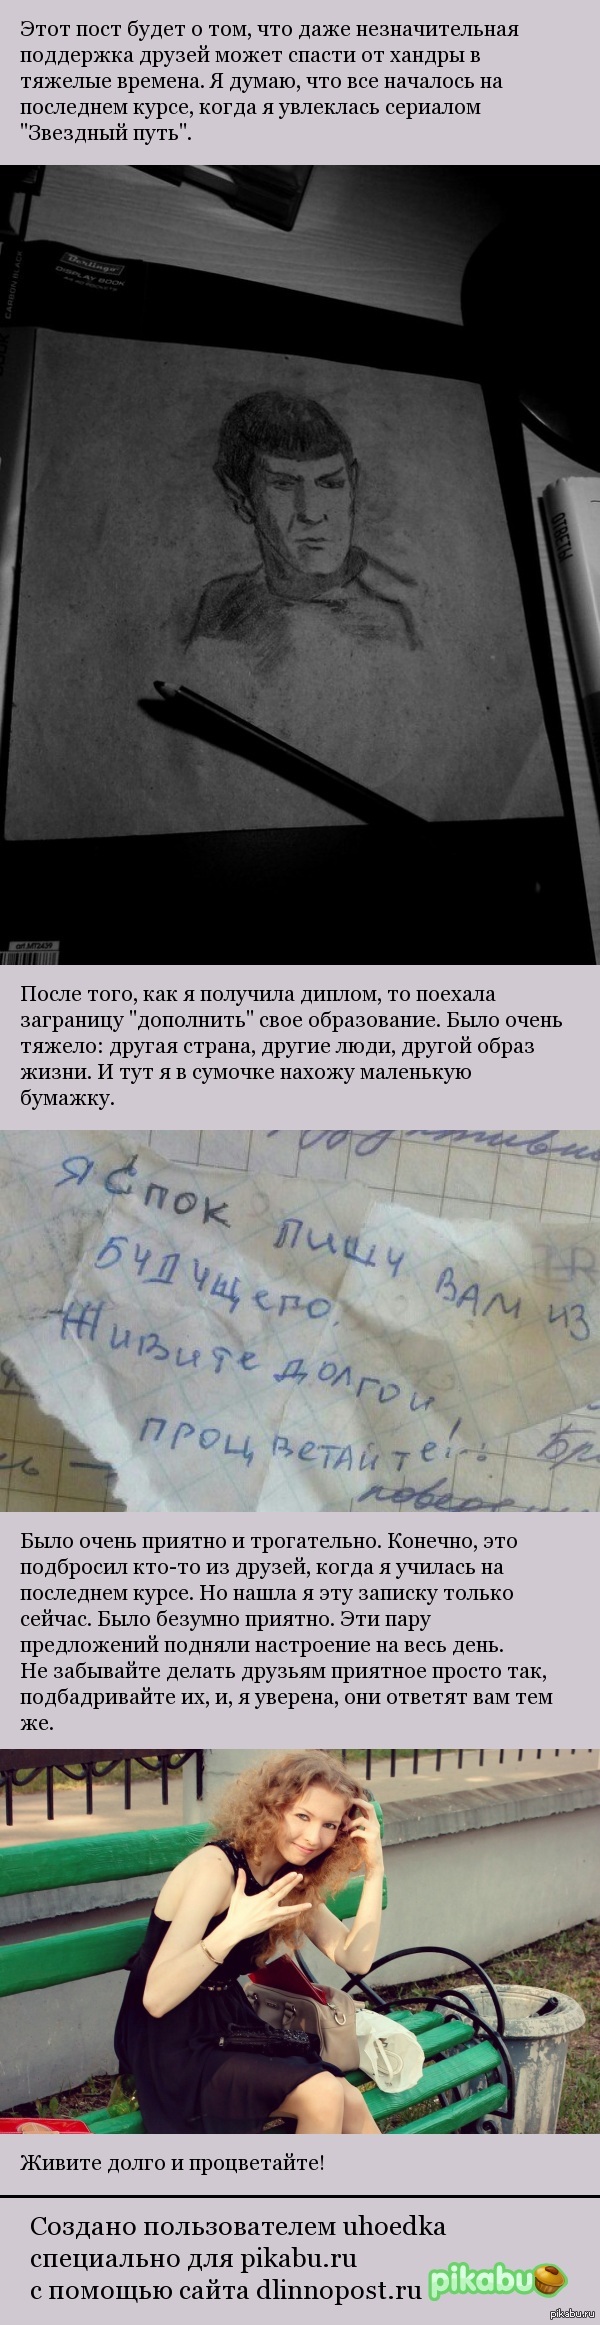 Этот пост будет о том, что даже незначительная
поддержка друзей может спасти от хандры в
тяжелые времена. Я думаю, что все началось на
последнем курсе, когда я увлеклась сериалом
"Звездный путь".
CARBON BLACK
Berlingo
DISPLAY BOOK
ОТВЕТЫ
art.MT2439
После того, как я получила диплом, то поехала
заграницу "дополнить" свое образование. Было очень
тяжело: другая страна, другие люди, другой образ
жизни. И тут я в сумочке нахожу маленькую
бумажку.
Я Спок пишу вам из
будущего.
Живите долго и
процветайте!
Было очень приятно и трогательно. Конечно, это
подбросил кто-то из друзей, когда я училась на
последнем курсе. Но нашла я эту записку только
сейчас. Было безумно приятно. Эти пару
предложений подняли настроение на весь день.
Не забывайте делать друзьям приятное просто так,
подбадривайте их, и, я уверена, они ответят вам тем
же.
Живите долго и процветайте!
Создано пользователем uhoedka
специально для pikabu.ru
с помощью сайта dlinnopost.ru pikabu
pikabu.ru